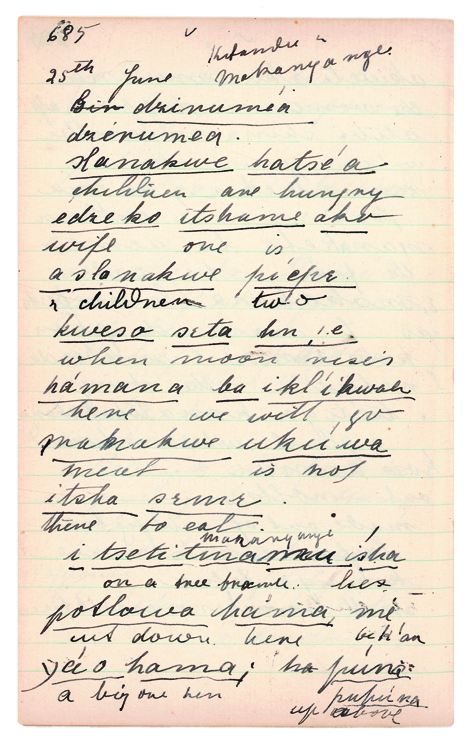 685
Kitandu
25th June Makanyange.
dzinumea
dzenumea.
slanakwe hatsé'a
children are hungry
edzeko itshame ako
wife one is
aslanakwe picpe
children two
kweso seta hn, i.e.
when moon rises
hámana ba ikl'ikwa
here we will go
makakwe ukúwa
meat is not
itsha seme.
there to eat.
makanyange
i tseti tina isha
on a tree branch. lies
potlowa háma, mé
cut down here
yáo hama; ha púna
a big one here pupúna
up above